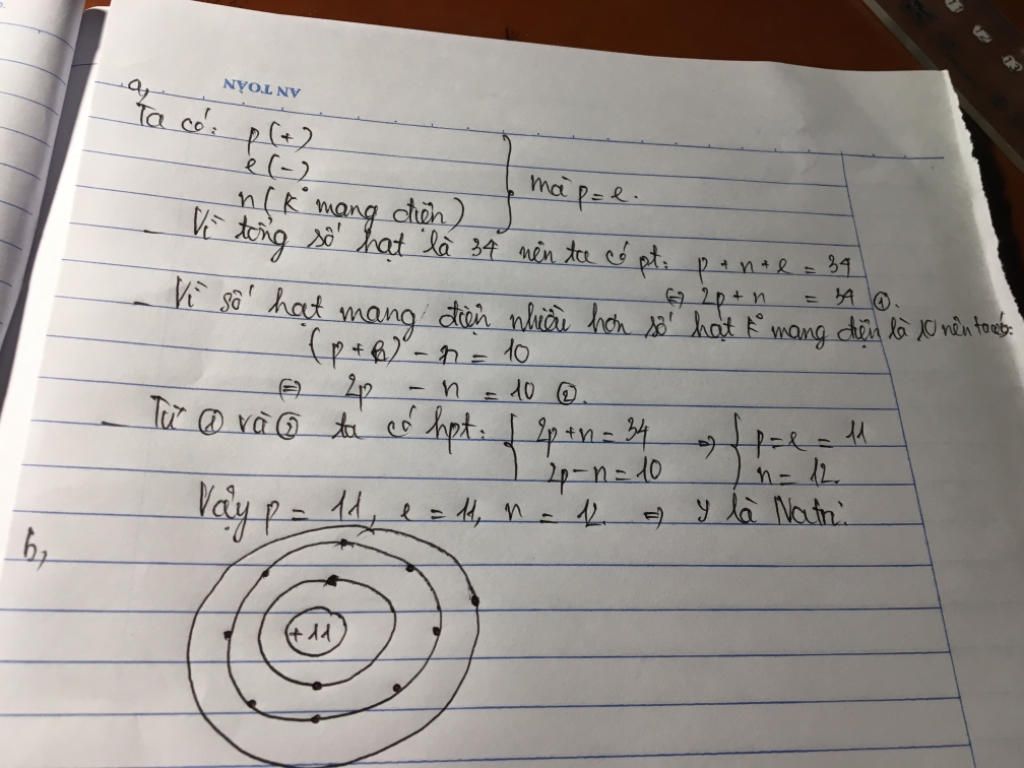 AN TOÀN
a,
Ta có: p(+)
e(-)
n(k° mang điện)
mà p=e.
- Vì tổng số hạt là 34 nên ta có pt: p+n+e = 34
⇔ 2p+n = 34 ①.
- Vì số hạt mang điện nhiều hơn số hạt k° mang điện là 10 nên ta có:
(p+e)-n = 10
⇔ 2p - n = 10 ②.
- Từ ① và ② ta có hpt: { 2p+n=34 ⇒ { p=e=11
2p-n=10 n=12.
Vậy p = 11, e = 11, n = 12 ⇒ Y là Natri.
b,
+11